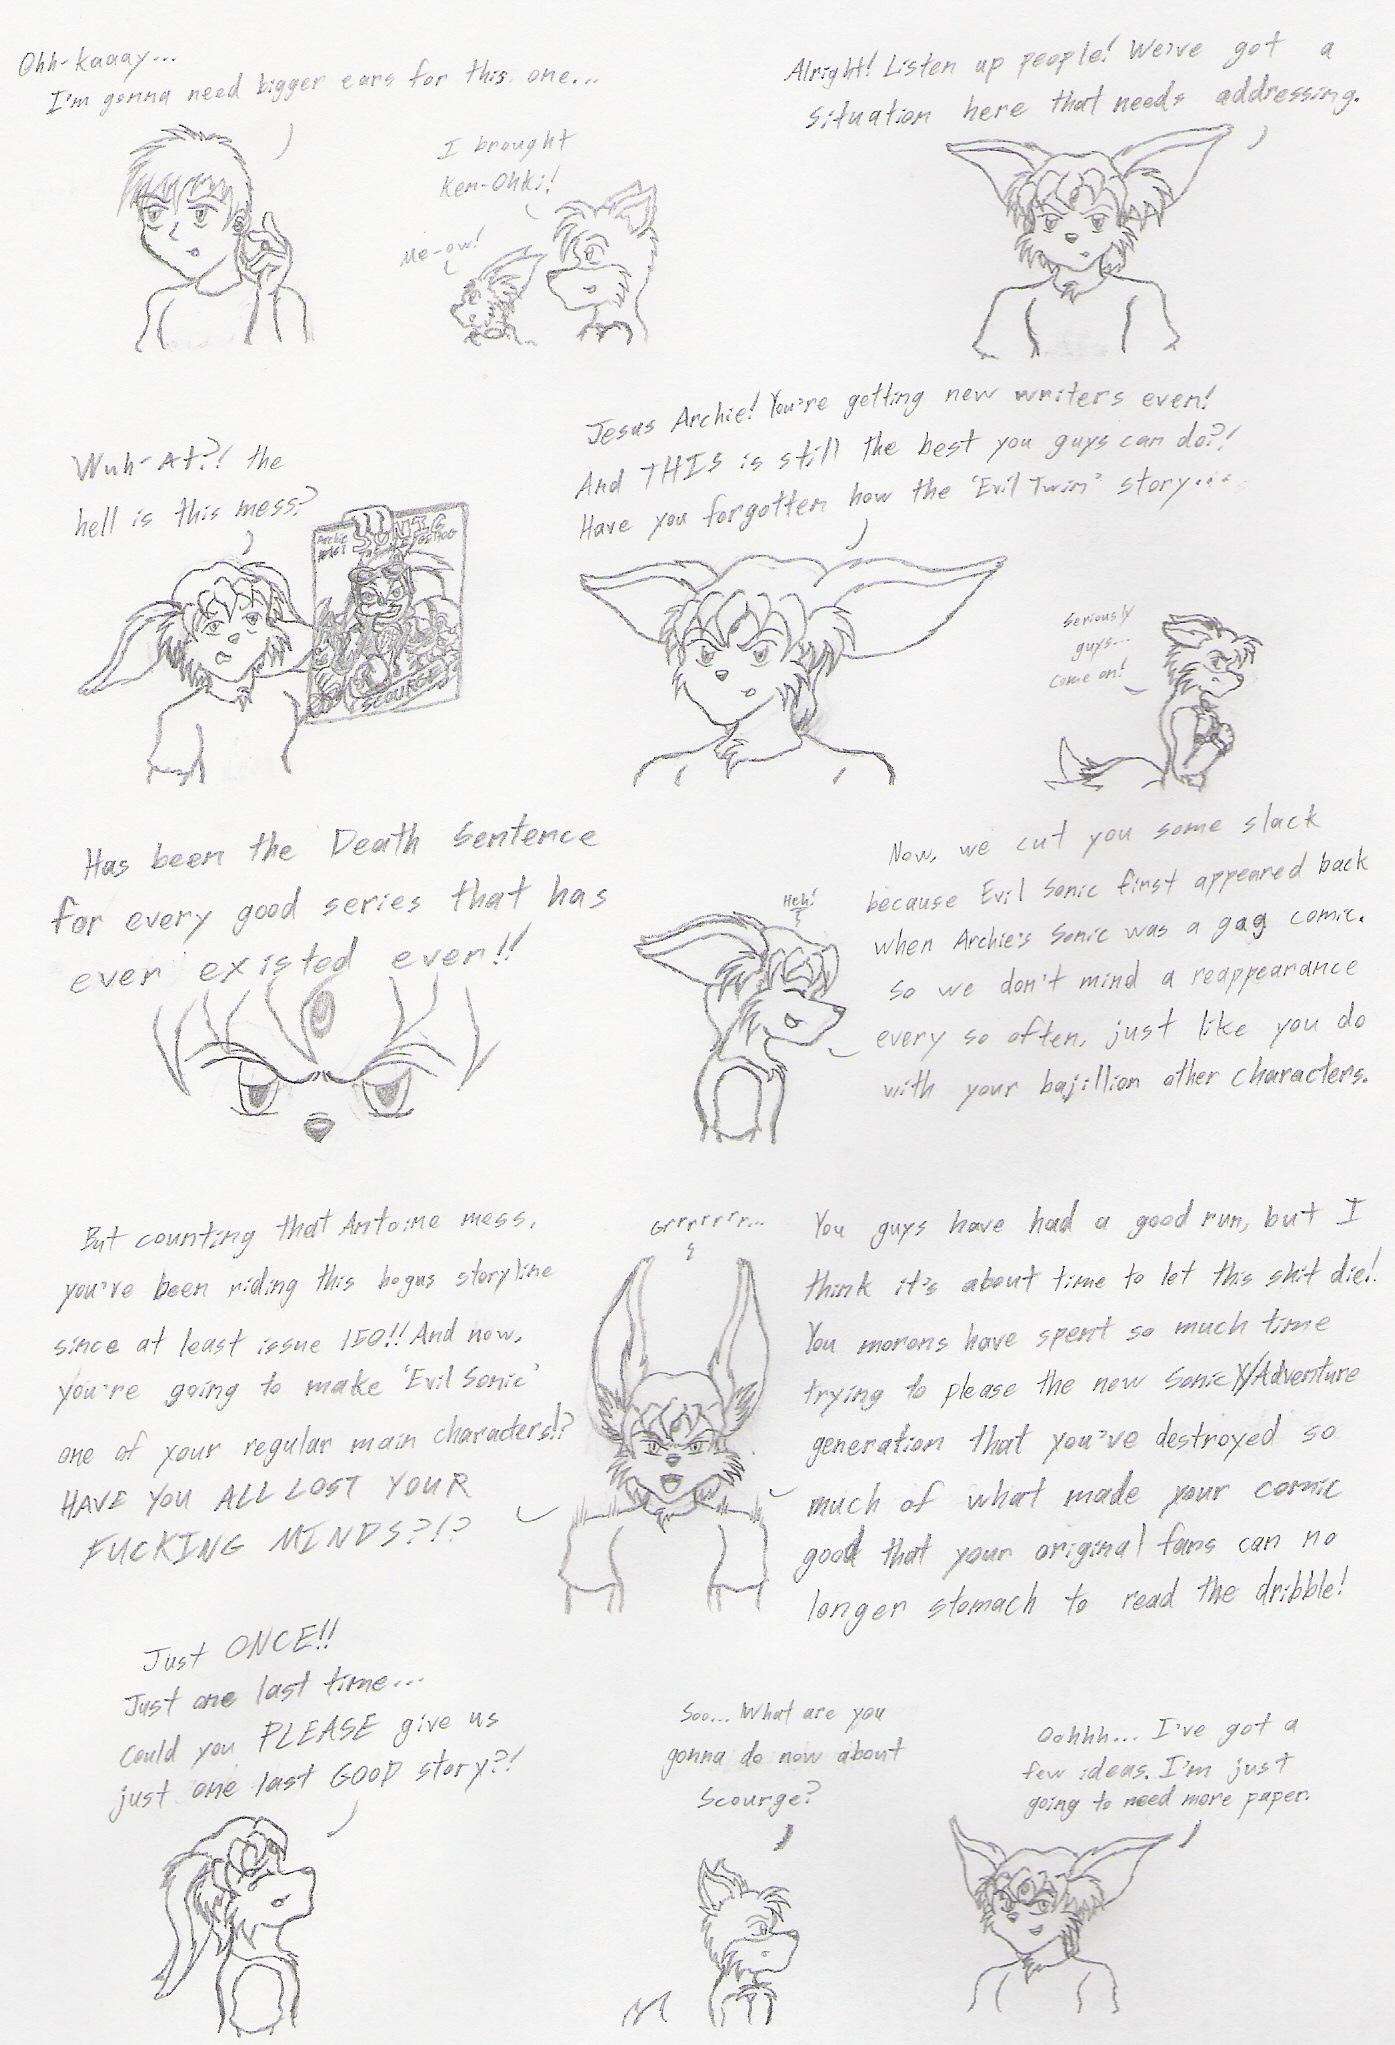 Ohh-kaaay...
I'm gonna need bigger ears for this one...
I brought
Ken-Ohki!
Me-ow!
Alright! Listen up people! We've got a
situation here that needs addressing.
Wuh-At?! the
hell is this mess?
Archie
#161
SONIC
THE HEDGEHOG
SCOURGE
Jesus Archie! You're getting new writers even!
And THIS is still the best you guys can do?!
Have you forgotten how the 'Evil Twin' story...
Seriously
guys...
Come on!
Has been the Death Sentence
for every good series that has
ever existed ever!!
Heh!
Now, we cut you some slack
because Evil Sonic first appeared back
when Archie's Sonic was a gag comic.
So we don't mind a reappearance
every so often, just like you do
with your bajillion other characters.
But counting that Antoine mess,
you've been riding this bogus storyline
since at least issue 150!! And now,
you're going to make 'Evil Sonic'
one of your regular main characters!?
HAVE YOU ALL LOST YOUR
FUCKING MINDS?!?
Grrrrrrr...
You guys have had a good run, but I
think it's about time to let this shit die!
You morons have spent so much time
trying to please the new Sonic X/Adventure
generation that you've destroyed so
much of what made your comic
good that your original fans can no
longer stomach to read the dribble!
Just ONCE!!
Just one last time...
Could you PLEASE give us
just one last GOOD story?!
Soo... What are you
gonna do now about
Scourge?
Oohhh... I've got a
few ideas. I'm just
going to need more paper.